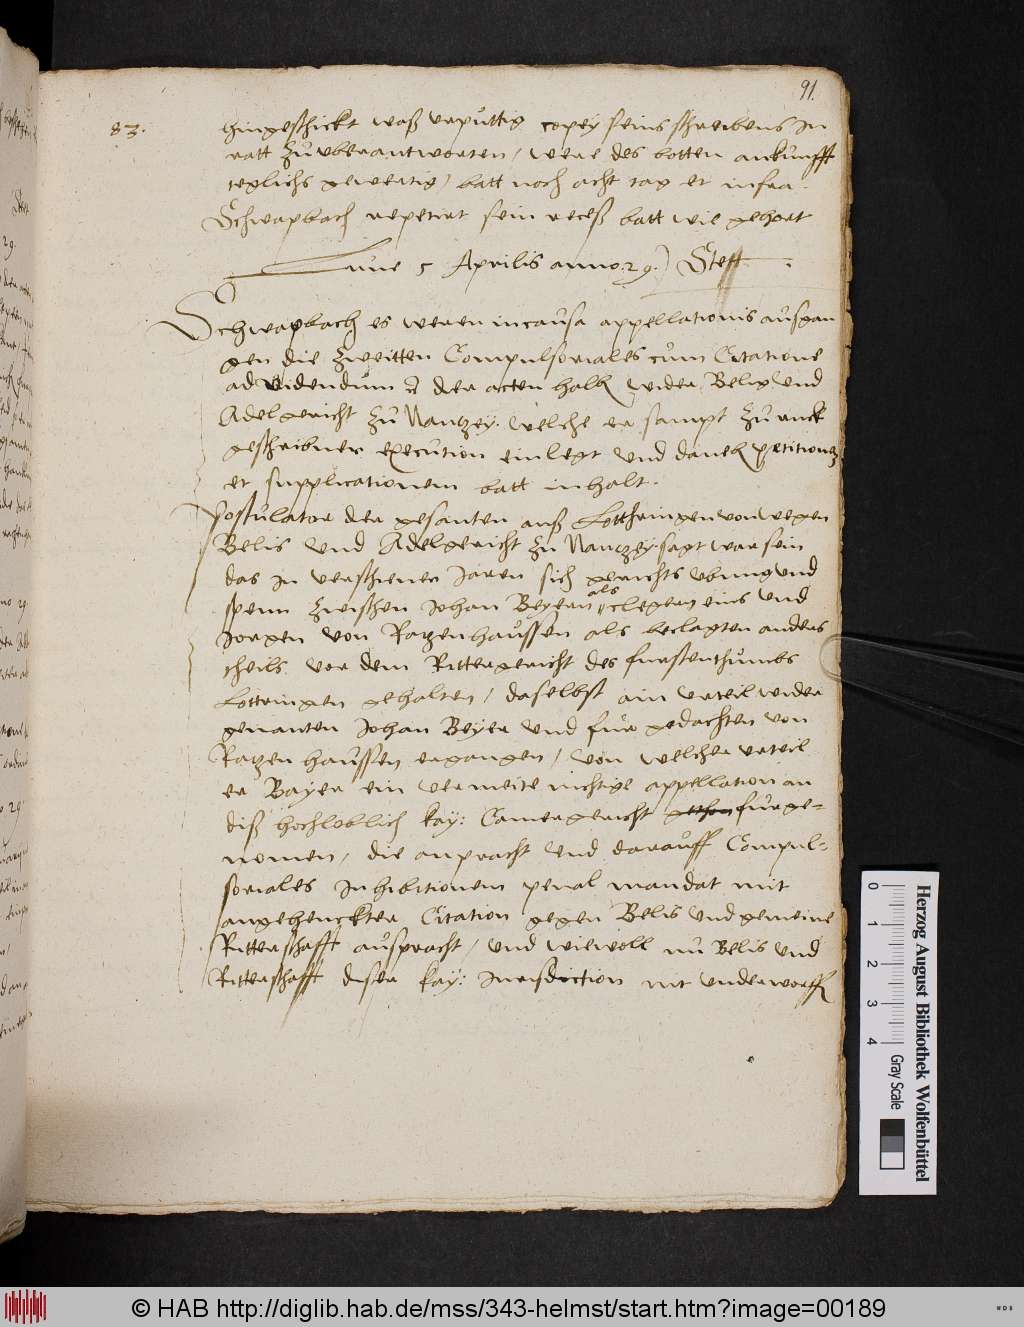 91.
83.
hingeschickt was urputtig copey seins schreibens in
ratt zu uberantworten / were des botten ankunfft
teglichs gewertig / batt noch acht tag et infra.
Schwapbach repetirt sein receß batt wie gehort
Lune 5 Aprilis anno. 29.) Steff.
Schwapbach es weren in causa appellationis ausgan
gen die zweitten Compulsoriales cum Citatione
ad videndum der acten halb wider Belis und
Adelgericht zu Nantzey. welche er sampt zuruck
geschribner execution einlegt und daneb petitionem
et supplicationem batt inhalt.
Postulator der gesanten auß Lotthringen von wegen
Belis und Adelgericht zu Nantzey. sagt war sein
das in verschiener Jaren sich gerichts ubung und
spenn zwischen Johan Beyern als clegern eins und
Jorgen von Ratzenhaussen als beclagten anders
theils vor dem Rittergericht des furstenthumbs
Lottringen gehalten / daselbst ain urteil wider
genanten Johan Beyer und fur gedachten von
Ratzenhaussen ergangen / von welcher urteil
er Bayer ein vermeite nichtige appellation an
diß hochloblich kay: Camergericht furge-
nomen / die anpracht und darauff Compul-
soriales Inhibitionem penal mandat mit
angehenckter Citation gegen Belis und gemeine
Ritterschafft auspracht / und wiewoll nu Belis und
Ritterschafft diser kay: Jurisdiction nit underworff
Herzog August Bibliothek Wolfenbüttel
0 1 2 3 4 Gray Scale
© HAB http://diglib.hab.de/mss/343-helmst/start.htm?image=00189
WDB